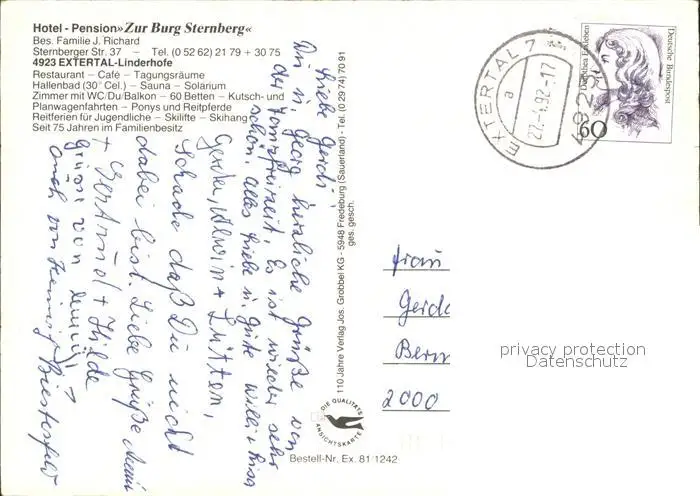 Hotel - Pension »Zur Burg Sternberg«
Bes. Familie J. Richard
Sternberger Str. 37 — Tel. (0 52 62) 21 79 + 30 75
4923 EXTERTAL-Linderhofe
Restaurant – Café – Tagungsräume
Hallenbad (30° Cel.) – Sauna – Solarium
Zimmer mit WC/Du/Balkon – 60 Betten – Kutsch- und
Planwagenfahrten – Ponys und Reitpferde
Reitferien für Jugendliche – Skilifte – Skihang
Seit 75 Jahren im Familienbesitz
Liebe Gerdi
Dir u. Georg herzliche Grüße von
der Es ist wieder sehr
schön. alles Liebe u. Gute Willi + Lisa
Gerda, Erwin +
Schade daß Du nicht
dabei bist. Liebe Grüße
+ Gertrud + Hilde
Grüße von
auch von
110 Jahre Verlag Jos. Grobbel KG - 5948 Fredeburg (Sauerland) - Tel. (0 29 74) 70 91
ges. gesch.
DIE QUALITÄTS
ANSICHTSKARTE
Bestell-Nr. Ex. 81 1242
EXTERTAL 7
a
22.-4.92-17
4923
Dorothea Erxleben
Deutsche Bundespost
60
Frau
Gerda
2000
privacy protection
Datenschutz